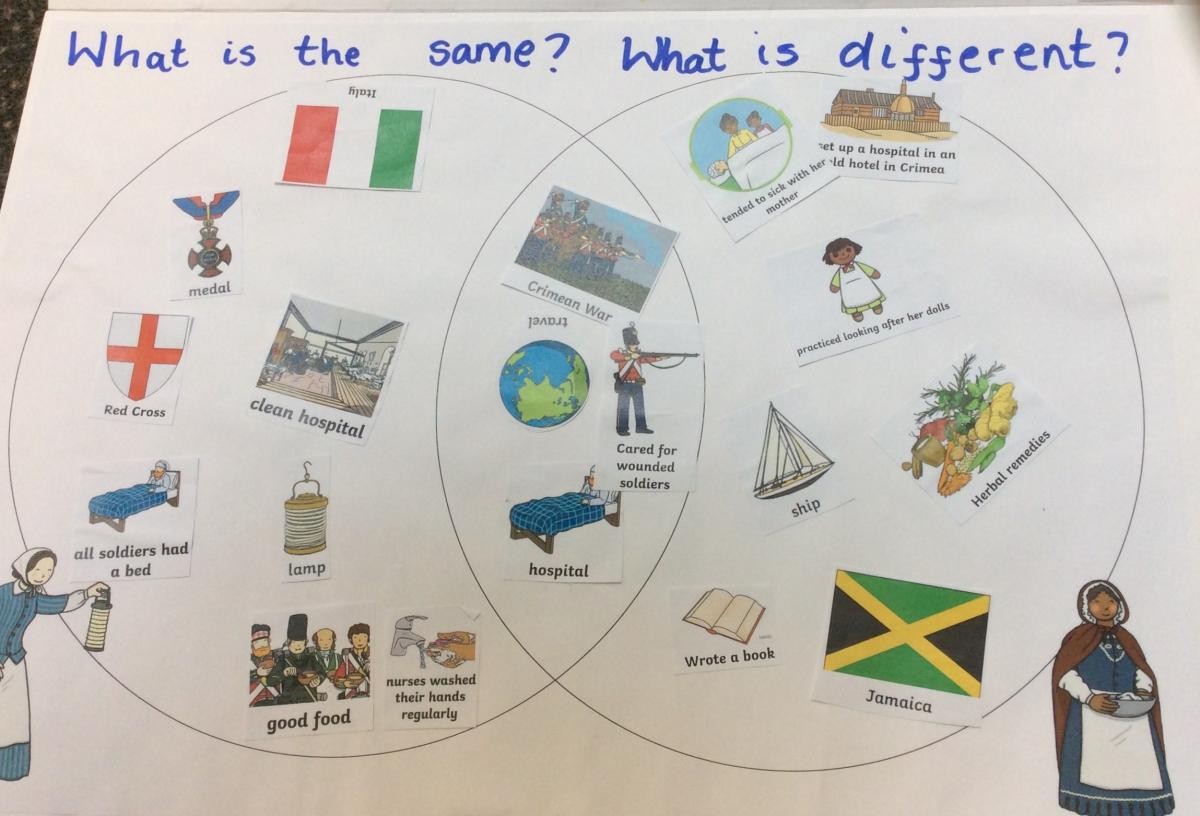 What is the same? What is different?
Italy
medal
Red Cross
clean hospital
all soldiers had
a bed
lamp
good food
nurses washed
their hands
regularly
Crimean War
travel
Cared for
wounded
soldiers
hospital
tended to sick with her
mother
set up a hospital in an
old hotel in Crimea
practiced looking after her dolls
ship
Herbal remedies
Wrote a book
Jamaica